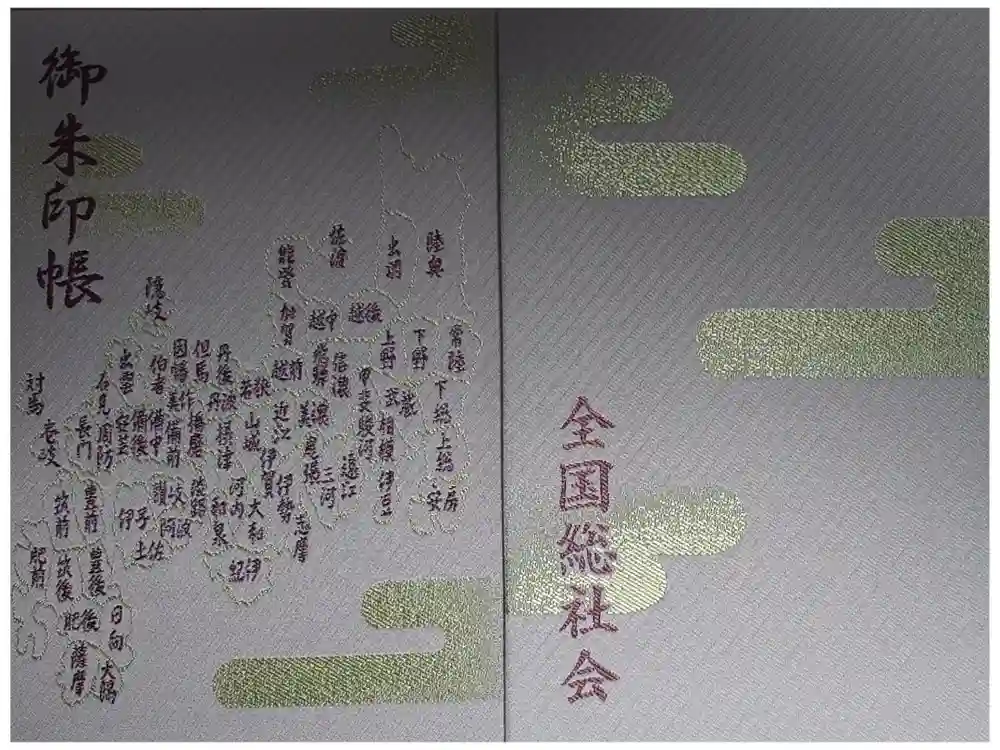 御朱印帳
陸奥
出羽
佐渡
能登
越後
越中
加賀
越前
飛騨
信濃
上野
下野
常陸
下総
上総
安房
武蔵
相模
伊豆
甲斐
駿河
遠江
三河
尾張
美濃
近江
若狭
山城
伊賀
伊勢
志摩
大和
紀伊
河内
和泉
摂津
丹波
丹後
但馬
播磨
淡路
因幡
美作
備前
備中
備後
伯耆
出雲
隠岐
石見
安芸
周防
長門
讃岐
阿波
伊予
土佐
対馬
壱岐
筑前
豊前
肥前
筑後
豊後
肥後
日向
薩摩
大隅
全国総社会